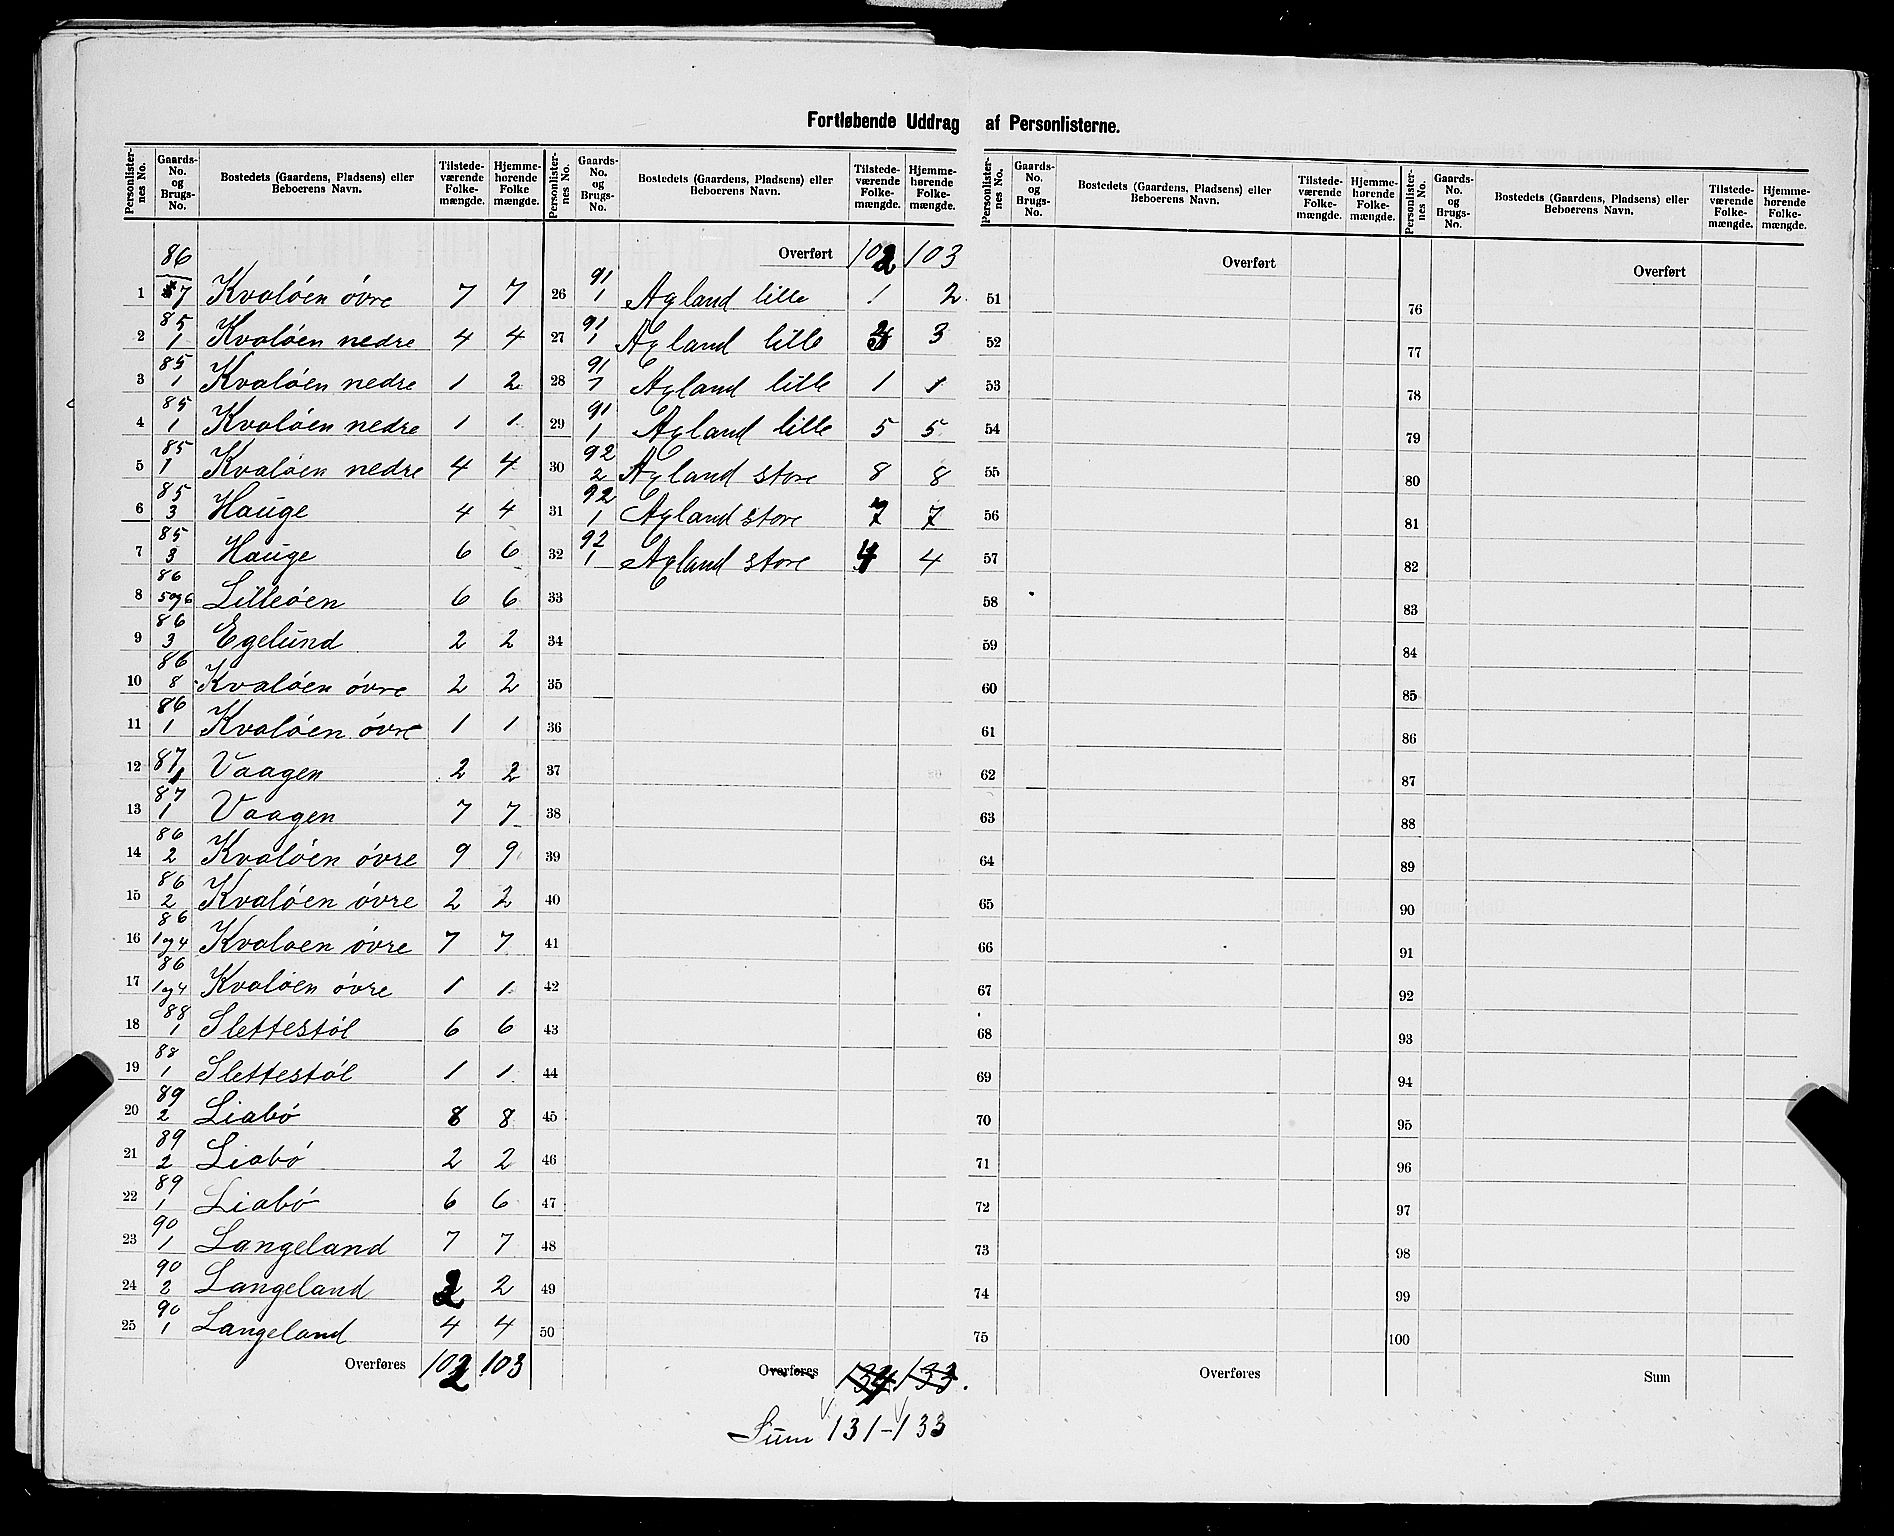 Fortløbende Uddrag af Personlisterne.
Personlisternes No. | Gaards-No. og Brugs-No. | Bostedets (Gaardens, Pladsens) eller Beboerens Navn. | Tilstedeværende Folkemængde. | Hjemmehørende Folkemængde. | Personlisternes No. | Gaards-No. og Brugs-No. | Bostedets (Gaardens, Pladsens) eller Beboerens Navn. | Tilstedeværende Folkemængde. | Hjemmehørende Folkemængde.
1 86/7 Kvaløen øvre 7 7
2 85/1 Kvaløen nedre 4 4
3 85/1 Kvaløen nedre 1 2
4 85/1 Kvaløen nedre 1 1
5 85/1 Kvaløen nedre 4 4
6 85/3 Hauge 4 4
7 85/3 Hauge 6 6
8 86/5og6 Lilleøen 6 6
9 86/3 Egelund 2 2
10 86/8 Kvaløen øvre 2 2
11 86/1 Kvaløen øvre 1 1
12 87/1 Vaagen 2 2
13 87/1 Vaagen 7 7
14 86/2 Kvaløen øvre 9 9
15 86/2 Kvaløen øvre 2 2
16 86/1og4 Kvaløen øvre 7 7
17 86/1og4 Kvaløen øvre 1 1
18 88/1 Slettestøl 6 6
19 88/1 Slettestøl 1 1
20 89/2 Liabø 8 8
21 89/2 Liabø 2 2
22 89/1 Liabø 6 6
23 90/1 Langeland 7 7
24 90/2 Langeland 2 2
25 90/1 Langeland 4 4
Overføres 102 103
Overført 102 103
26 91/1 Ayland lille 1 2
27 91/1 Ayland lille 3 3
28 91/7 Ayland lille 1 1
29 91/1 Ayland lille 5 5
30 92/2 Ayland store 8 8
31 92/1 Ayland store 7 7
32 92/1 Ayland store 4 4
33
34
35
36
37
38
39
40
41
42
43
44
45
46
47
48
49
50
Overføres 134 133.
Sum 131-133
Personlisternes No. | Gaards-No. og Brugs-No. | Bostedets (Gaardens, Pladsens) eller Beboerens Navn. | Tilstedeværende Folkemængde. | Hjemmehørende Folkemængde. | Personlisternes No. | Gaards-No. og Brugs-No. | Bostedets (Gaardens, Pladsens) eller Beboerens Navn. | Tilstedeværende Folkemængde. | Hjemmehørende Folkemængde.
Overført
51
52
53
54
55
56
57
58
59
60
61
62
63
64
65
66
67
68
69
70
71
72
73
74
75
Overføres
Overført
76
77
78
79
80
81
82
83
84
85
86
87
88
89
90
91
92
93
94
95
96
97
98
99
100
Sum